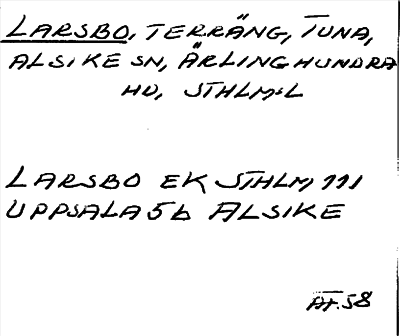 LARSBO, TERRÄNG, TUNA,
ALSIKE SN, ÄRLINGHUNDRA
HD, STHLMS L
LARSBO EK STHLM 111
UPPSALA 5b ALSIKE
AF. 58